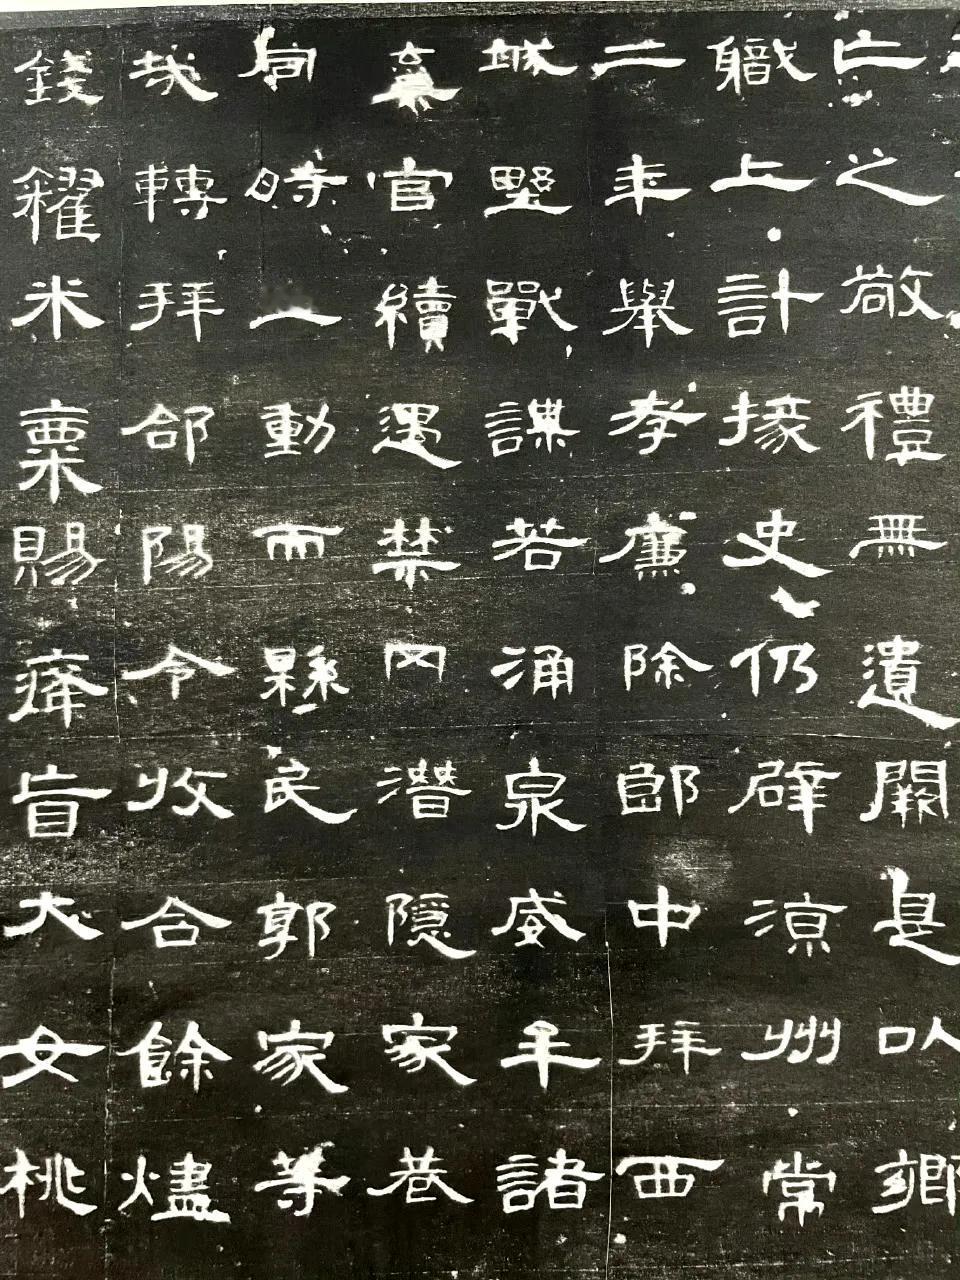 亡之敬禮無遺闕是以鄉
職上計掾史仍辟涼州常
二年舉孝廉除郎中拜西
城野戰謀若涌泉威牟諸
嘉官續遇禁冈潛隱家巷
同時並動而縣民郭家等
哉轉拜郃陽令收合餘燼
錢糴米粟賜癃盲大女桃